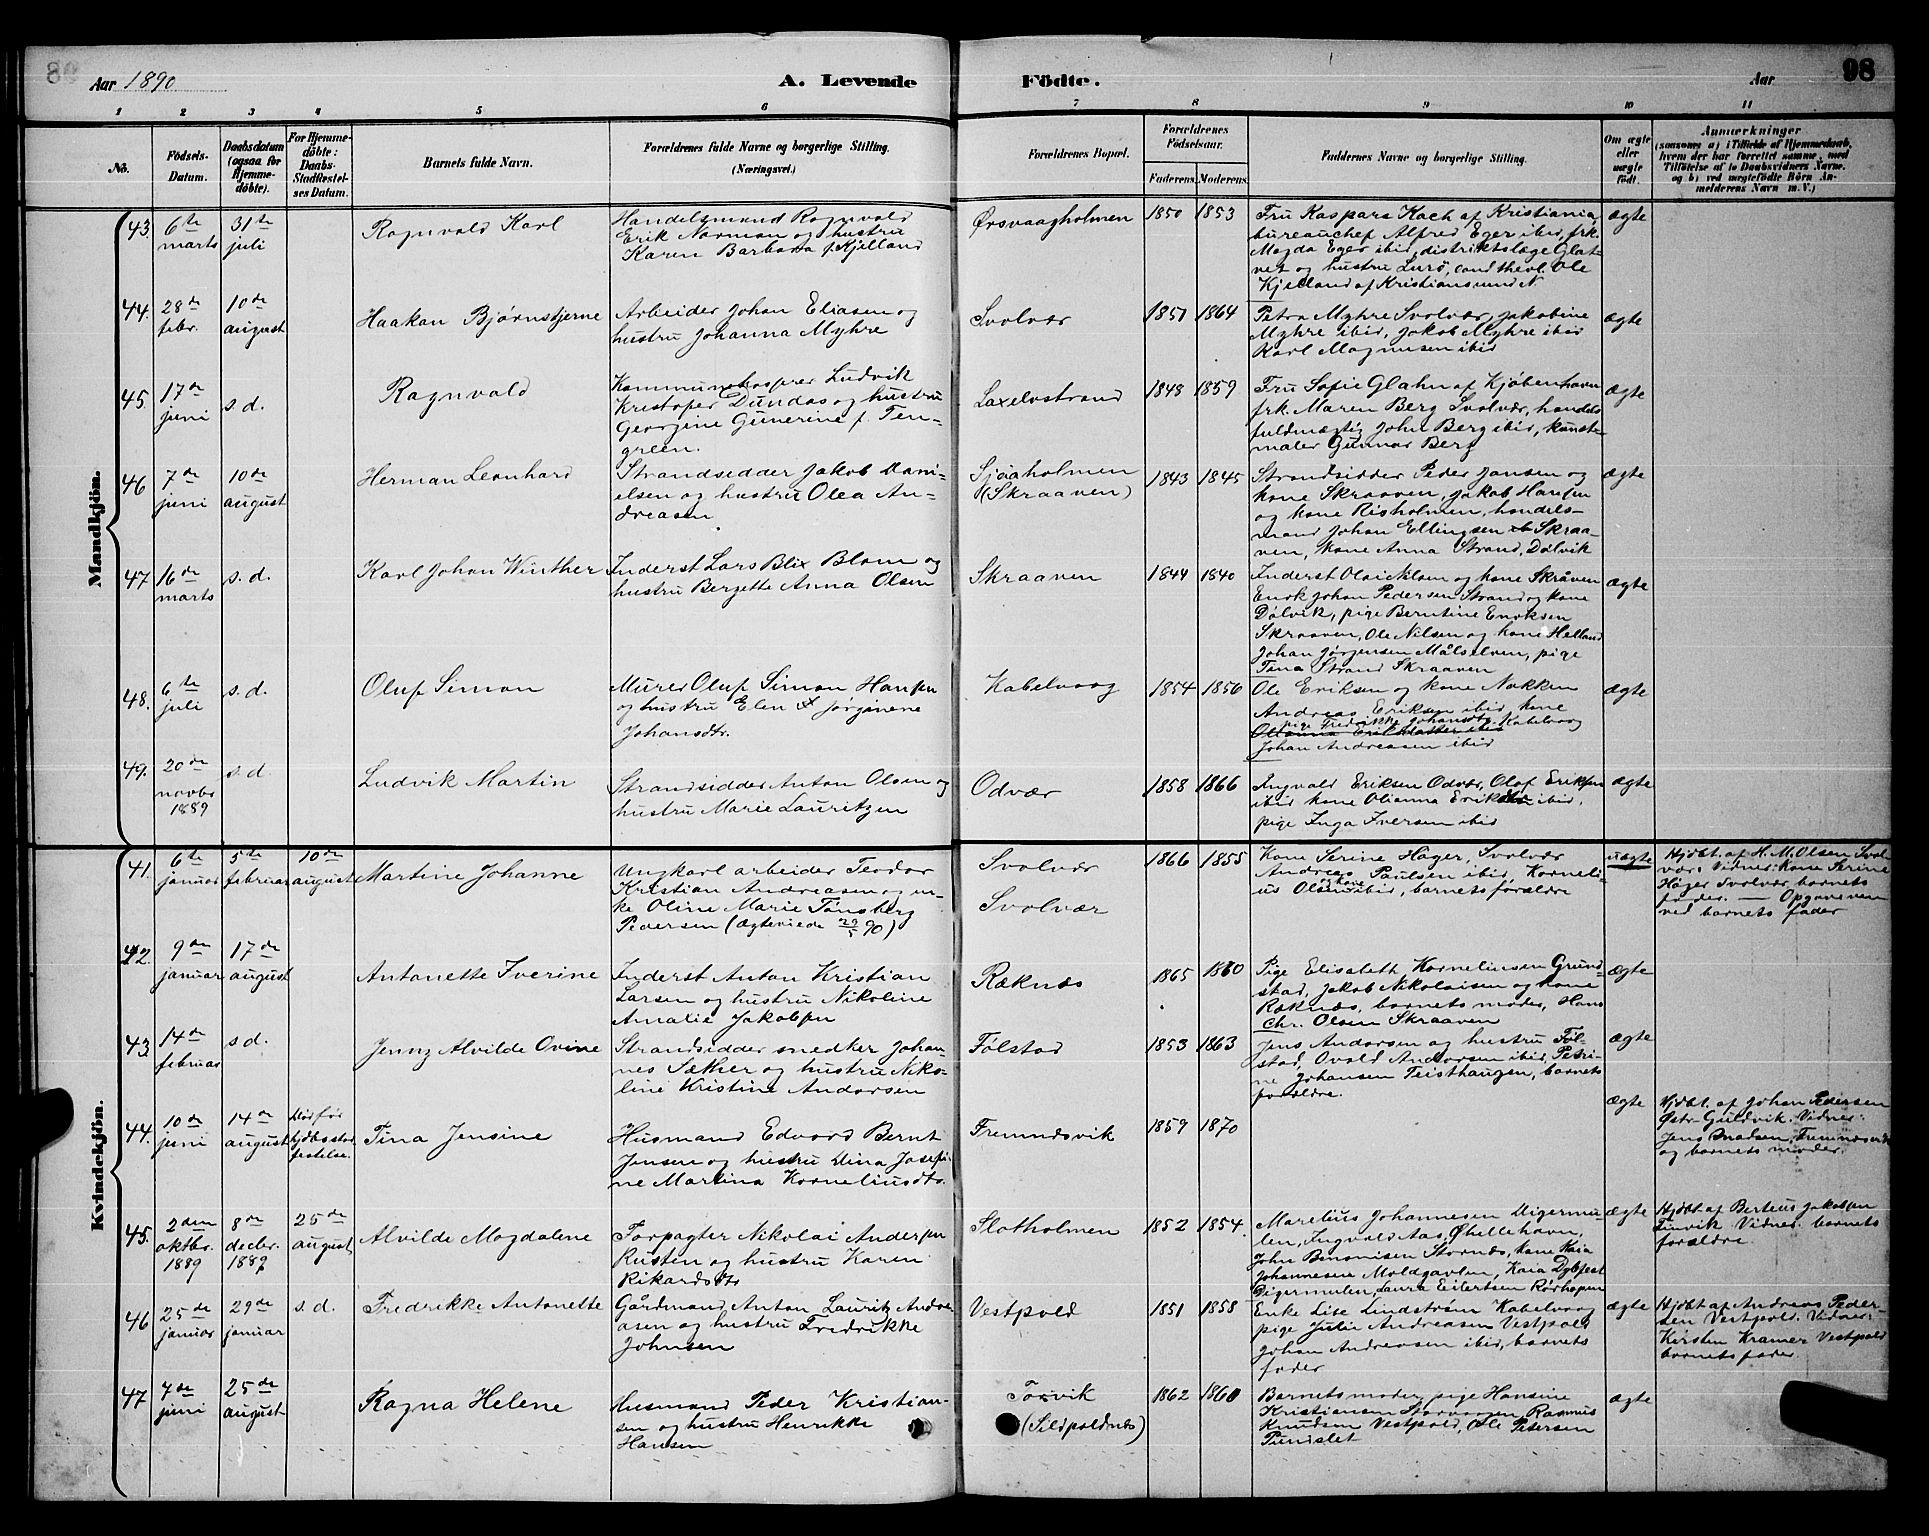 Aar 1890
A. Levende
Födte.
Aar
98
1 2 3 4 5 6 7 8 9 10 11
No.
Födsels-Datum.
Daabsdatum (ogsaa for Hjemme-döbte).
For Hjemme-döbte: Daabs-Stadfæstel-ses Datum.
Barnets fulde Navn.
Forældrenes fulde Navne og borgerlige Stilling. (Næringsvei.)
Forældrenes Bopæl.
Forældrenes Födselsaar.
Faderens. Moderens.
Faddernes Navne og borgerlige Stilling.
Om ægte eller uægte födt.
Anmærkninger
Mandkjön.
43. 6te marts 31te juli
Ragnvald Karl
Handelsmand Ragnvald
Erik Norman og hustru
Karen Barbara f. Kjelland
Ørsvaagholmen
1850 1853
Fru Kaspara Kach af Kristiania,
bureauchef Alfred Eger ibid, frk.
Magda Eger ibid, distriktslæge Glat-
vet og hustru Lurö, cand theol. Ole
Kjelland af Kristianssund N
ægte
44. 28de febr. 10de august
Haakon Bjørnstjerne
Arbeider Johan Eliasen og
hustru Johanna Myhre
Svolvær
1851 1864
Petra Myhre Svolvær, Jakobine
Myhre ibid, Jakob Myhre ibid
Karl Magnusen ibid
ægte
45. 17de juni s.d.
Ragnvald
Ludvik
Kristofer Dundas og hustru
Georgine Gunerine f. Ten-
green.
Laxelvstrand
1848 1859
Fru Sofie Glahn af Kjøbenhavn
frk. Maren Berg Svolvær, handels
fuldmægtig John Berg ibid, kunst-
maler Gunnar Berg
ægte
46 7de juni 10de august
Herman Leonhard
Strandsidder Jakob Dani-
elsen og hustru Olea An-
dreasen
Sjøaholmen
(Skraaven)
1843 1845
Strandsidder Peder Jansen og
kone Skraaven, Jakob Hansen
og kone Risholmen, handels-
mand Johan Ellingsen Skraa-
ven, kone Anna Strand, Dølvik
ægte
47 16de marts s.d.
Karl Johan Winther
Inderst Lars Blix Blom og
hustru Bergette Anna Olsen
Skraaven
1844 1840
Inderst Olai Nilsen og kone Skråven
Enok Johan Pedersen Strand og kone
Dølvik, pige Berntine Enoksen
Skraaven, Ole Nilsen og kone Helland
Johan Jørgensen Målselven, pige
Tina Strand Skraaven
ægte
48. 6te juli s.d.
Oluf Simon
Murer Oluf Simon Hansen
og hustru Elen Jørginene
Johansdtr.
Kabelvaag
1854 1856
Ole Eriksen og kone Nokken
Andreas Eriksen ibid, kone
pige Fredrikke Johansdtr. Kabelvaag
Johan Andreasen ibid
ægte
49. 20de novbr 1889 s.d.
Ludvik Martin
Strandsidder Anton Olsen og
hustru Marie Lauritzen
Odvær
1858 1866
Ingvald Eriksen Odvær, Olaf Eriksen
ibid kone Olianna Eriksdtr ibid,
pige Inga Iversen ibid
ægte
Kvindekjön.
41. 6te januar 5te februar 10de august
Martine Johanne
Ungkarl arbeider Teodor
Kristian Andreasen og en-
ke Oline Marie Tønsberg
Pedersen (ægteviede 29/5 90)
Svolvær
Svolvær
1866 1855
Kone Serine Hager, Svolvær
Andreas Paulsen ibid, Korneli-
us Olsen og kone ibid, barnets forældre
uægte
Hjdbt. af H. M. Olsen Svol-
vær. Vidner: Kone Serine
Hager Svolvær, barnets
fader. — Opgiveren
ved barnets fader
42. 9de januar 17de august
Antonette Iverine
Inderst Anton Kristian
Larsen og hustru Nikoline
Amalie Jakobsen
Ræknæs
1865 1860
Pige Elisabeth Korneliusen Grund-
stad, Jakob Nikolaisen og kone
Ræknæs, barnets moder, Hans
Chr. Olsen Skraaven
ægte
43. 14de februar s.d.
Jenny Alvilde Ovine
Strandsidder snedker Johan-
nes Sæther og hustru Niko-
line Kristine Andorsen
Følstad
1853 1863
Jens Andorsen og hustru Føl-
stad, Ovald Andorsen ibid, Petri-
ne Johansen Teisthaugen, barnets
forældre.
ægte
44. 10de juni 14de august Død før hjdbs stad-festelse.
Tina Jensine
Husmand Edvard Bernt
Jensen og hustru Dina Josefi-
ne Martina Korneliusdtr.
Fremndsvik
1859 1870
ægte
Hjdbt. af Johan Pedersen
Østr. Guldvik. Vidner:
og barnets moder.
45. 2den oktbr. 1889 8de decbr. 1889 25de august
Alvilde Magdalene
Forpagter Nikolai Andersen
Rusten og hustru Karen
Rikardsdtr
Slotholmen
1852 1854
Marelius Johannesen Digermu-
len, Ingvald Aas, Øhellehavn,
John Benonisen Stornæs, kone Kaia
Johannesen Moldgavlen, Kaia Dybfest
Digermulen, Laura Eilertsen Rørhopen
ægte
Hjdbt af Berteus Jakobsen
Tinvik Vidner. barnets
forældre.
46 25de januar 29de januar s.d.
Fredrikke Antonette
Gårdmand Anton Lauritz Andre-
asen og hustru Fredrikke
Johnsen
Vestpold
1851 1858
Enke Lise Lindstrøm Kabelvaag
pige Julie Andreasen Vestpold
Johan Andreasen ibid, barnets
fader
ægte
Hjdbt af Andreas Peder-
sen Vestpold. Vidner:
Kirsten Kramer Vestpold
barnets fader.
47 7de juni 25de august
Ragna Helene
Husmand Peder Kristian-
sen og hustru Henrikke
Hansen
Torvik
(Sildpoldnæs)
1862 1860
Barnets moder, pige Hansine
Kristiansen Storvaagen Rasmus
Knudsen Vestpold, Ole Petersen
Pundslet
ægte